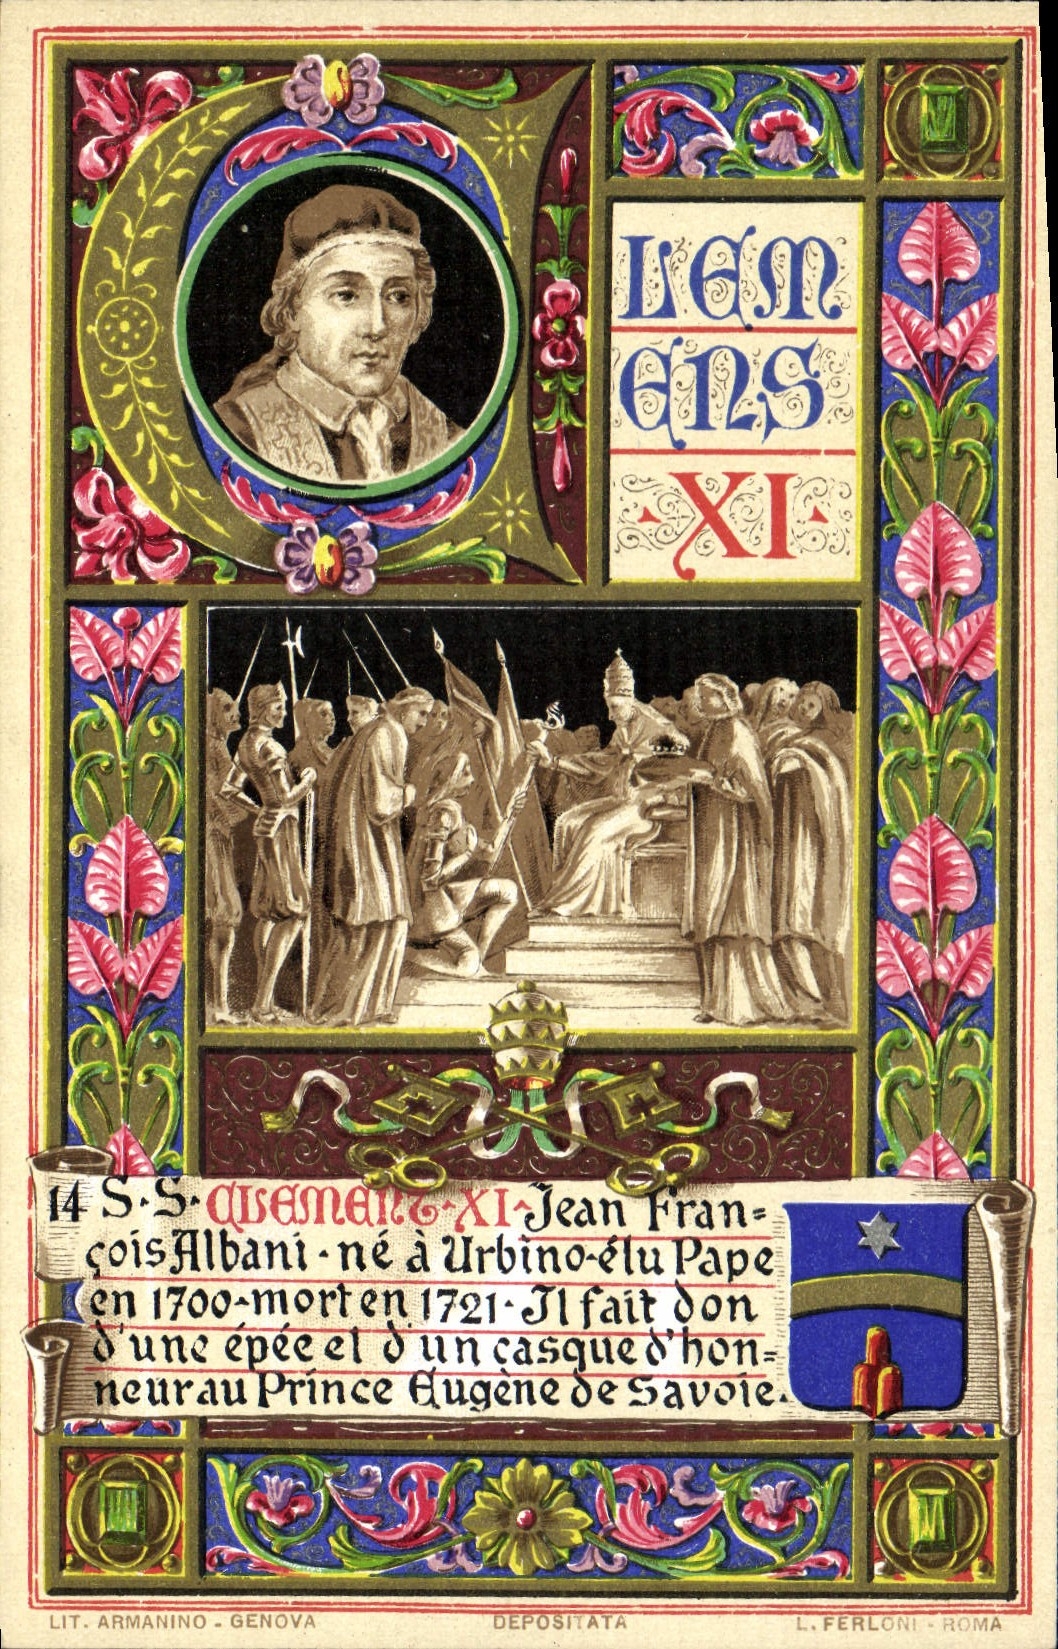 CLEM
ENS
·XI·
14 S·S·CLEMENT·XI·Jean Fran=
çois Albani·né à Urbino·élu Pape
en 1700·mort en 1721·Il fait don
d'une épée et d'un casque d'hon=
neur au Prince Eugène de Savoie.
LIT. ARMANINO - GENOVA
DEPOSITATA
L. FERLONI - ROMA